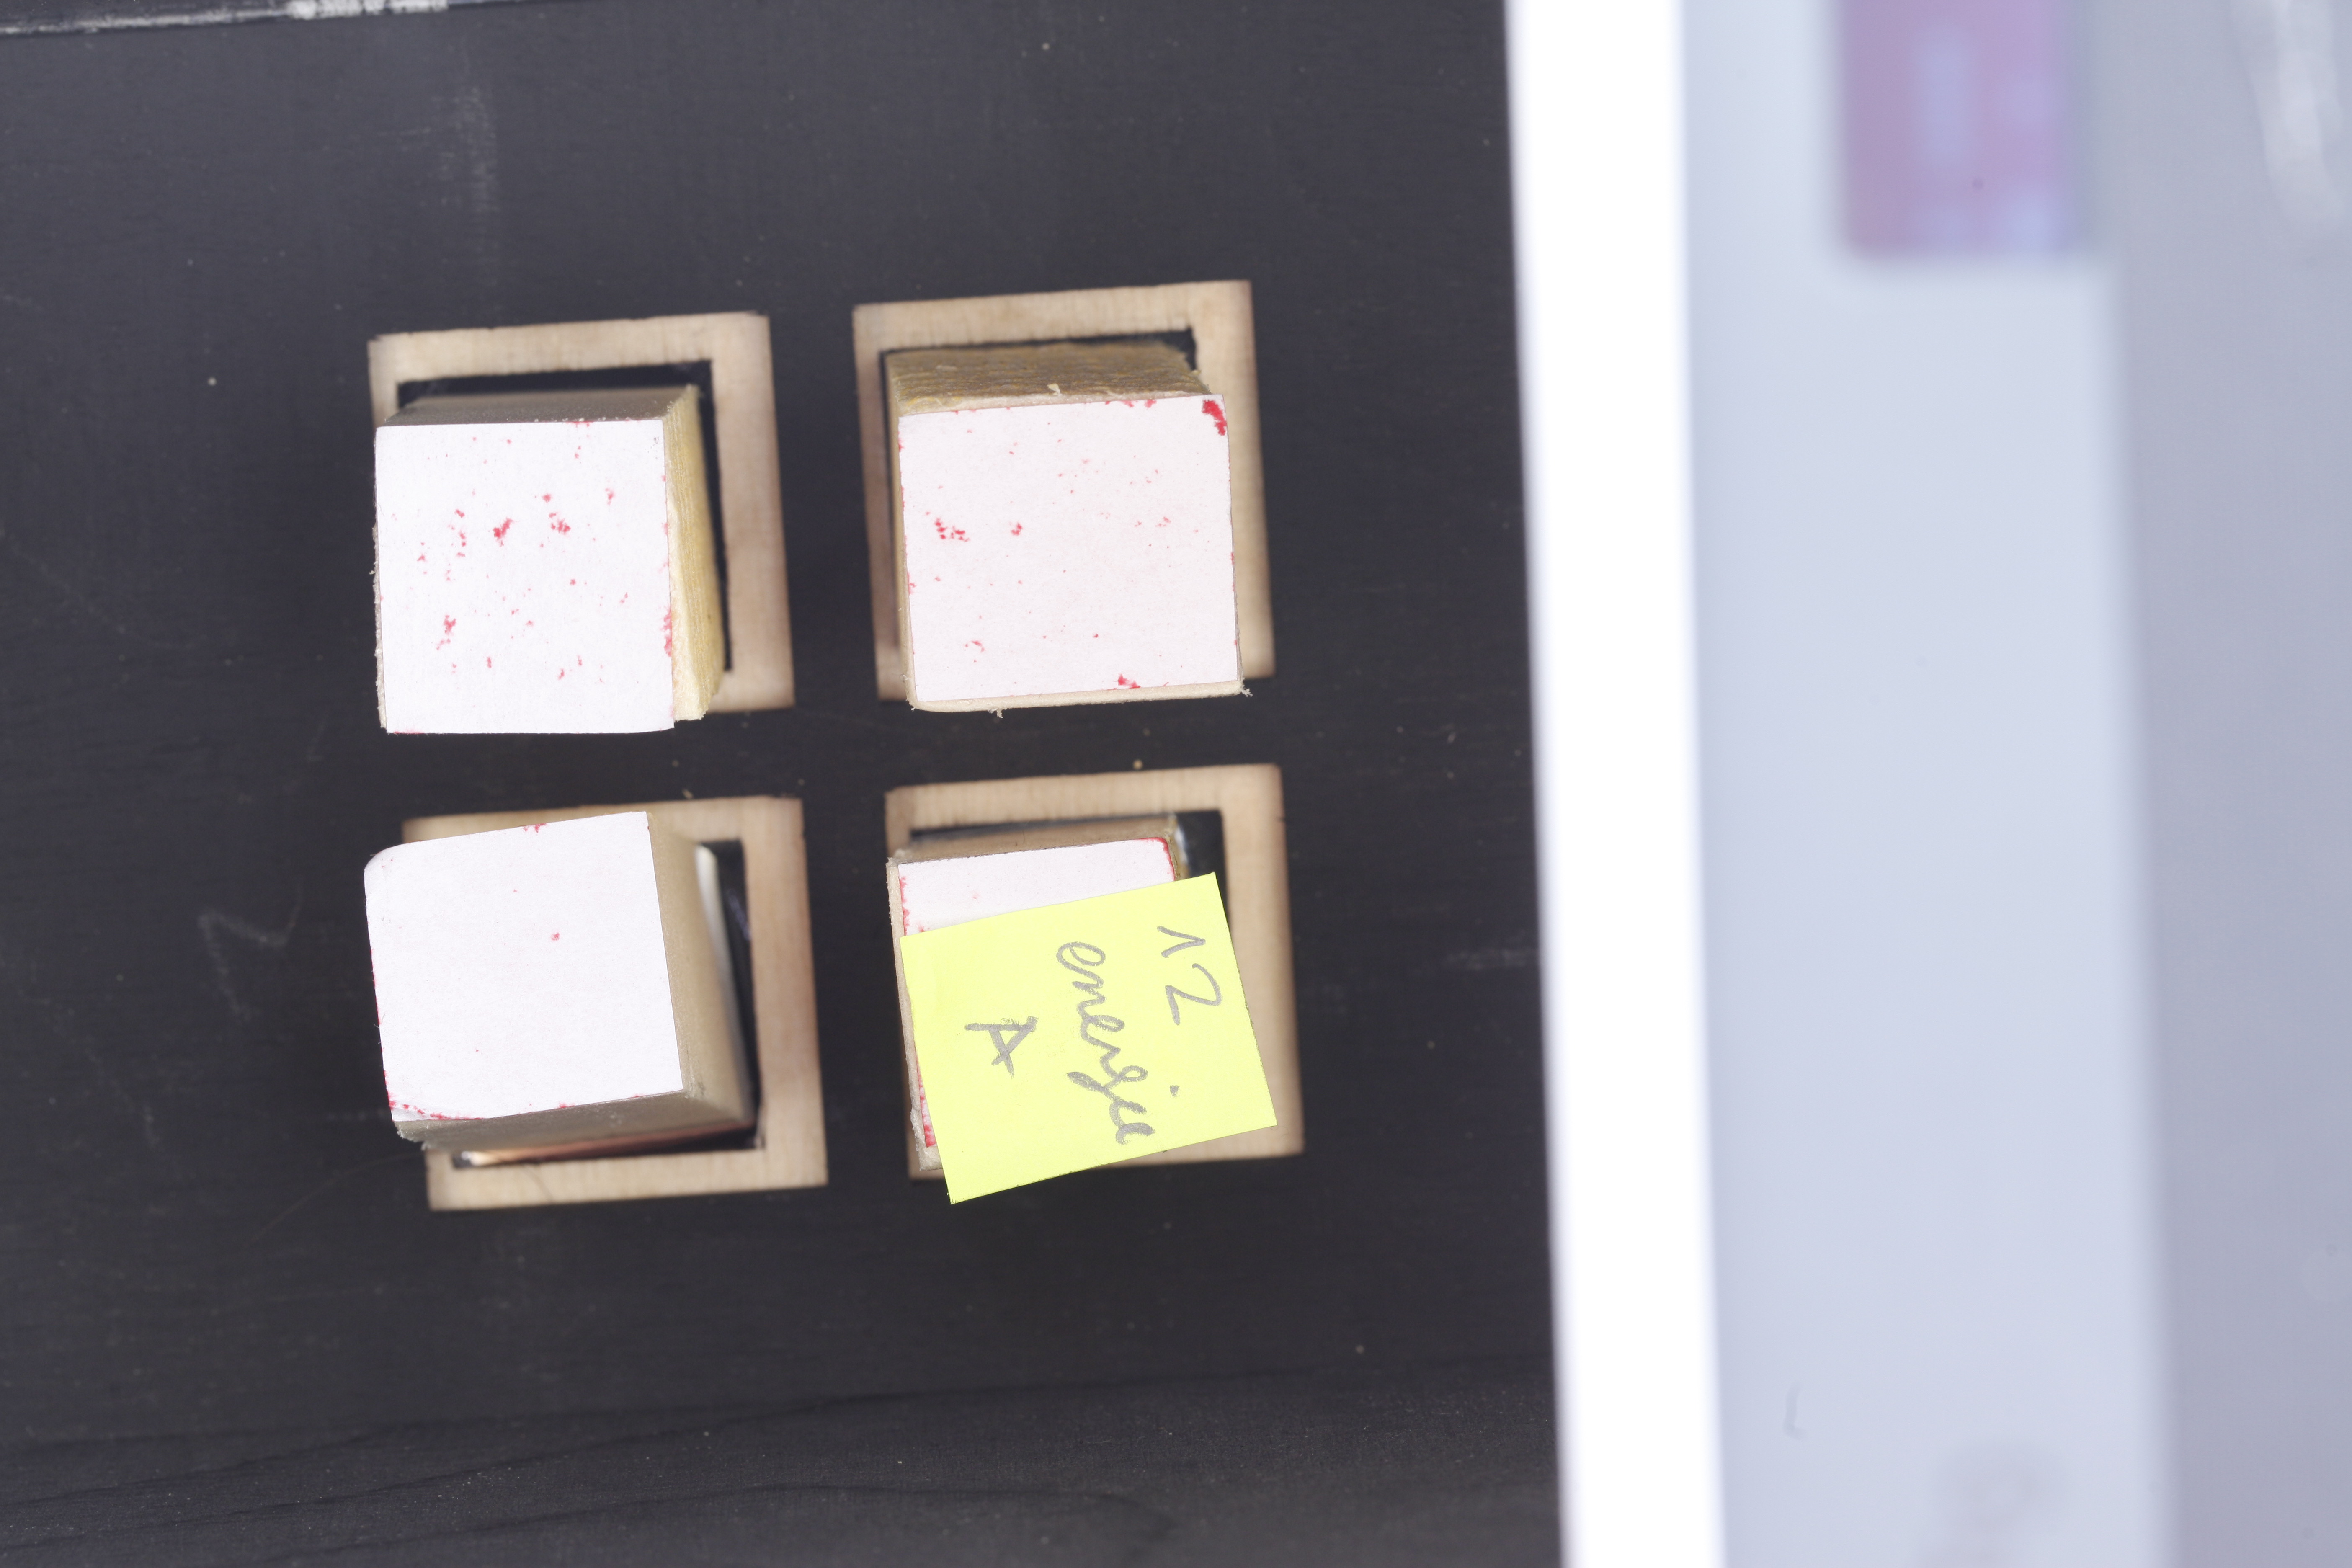 12
energie
A